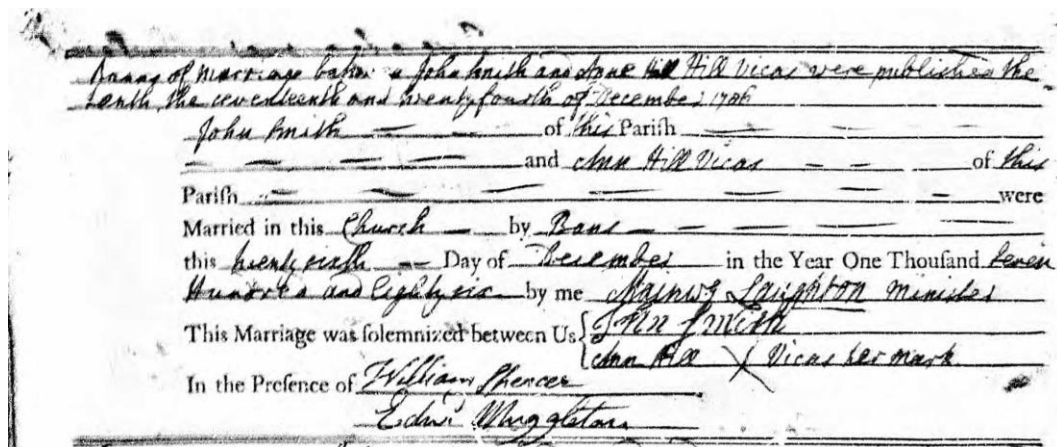 Banns of Marriage betwn John Smith and Anne Hill Vicas were published the
tenth the seventeenth and twenty fourth of December 1786
John Smith — — — of this Pariſh — — — —
— — — — — and Ann Hill Vicas — — of this
Pariſh — — — — — — — — were
Married in this Church — by Bans — — — — —
this twenty sixth — Day of December in the Year One Thouſand seven
Hundred and Eighty six by me Laughton Minister
This Marriage was ſolemnized between Us John Smith
Ann Hill X Vicas her mark
In the Preſence of William Spencer
Edwd Muggleton